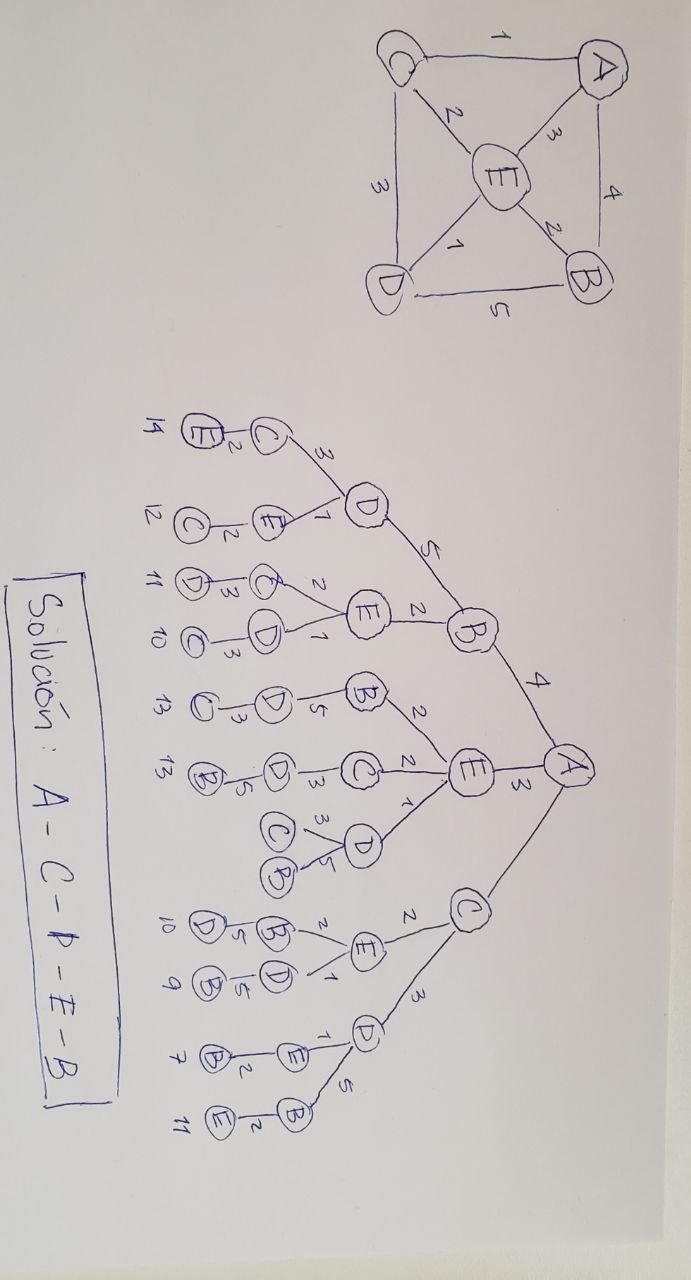 A 4 B
3 2
1 E 5
2 1
C 3 D
A
4 3
B E C
5 2 2 2 1 2 3
D E B C D E D
3 1 2 1 5 3 3 5 2 1 1 5
C E C D D D C B B D E B
2 2 3 3 3 5 5 5 2 2
E C D C C B D B B E
14 12 11 10 13 13 10 9 7 11
Solución: A - C - D - E - B